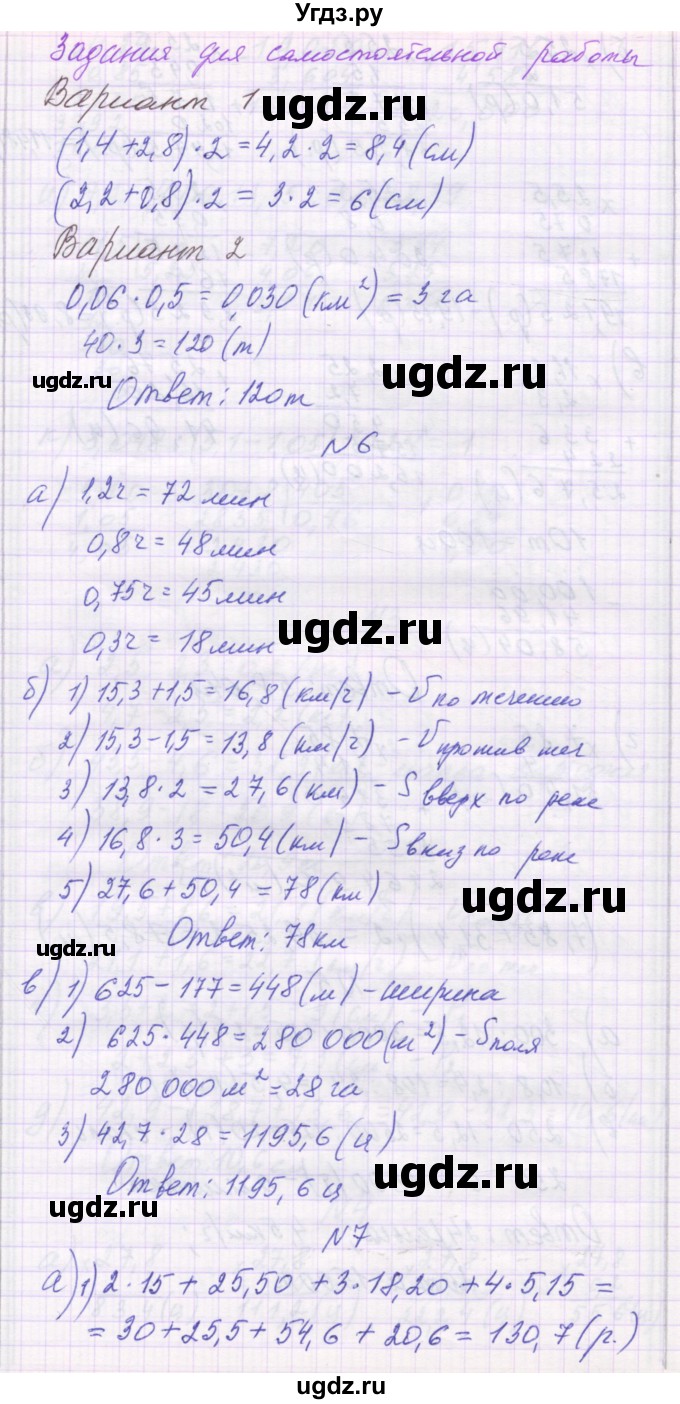 Угдз.ру
Задания для самостоятельной работы
Вариант 1
ugdz.ru
(1,4+2,8)·2=4,2·2=8,4(см)
(2,2+0,8)·2=3·2=6(см)
Вариант 2
0,06·0,5=0,030(км²)=3га
40·3=120(т)
ugdz.ru
ugdz.ru
Ответ: 120т
N6
а) 1,2ч=72мин
0,8ч=48мин
0,75ч=45мин
0,3ч=18мин
ugdz.ru
б) 1) 15,3+1,5=16,8(км/ч) - V по течению
2) 15,3-1,5=13,8(км/ч) - V против теч
3) 13,8·2=27,6(км) - S вверх по реке
4) 16,8·3=50,4(км) - S вниз по реке
5) 27,6+50,4=78(км)
ugdz.ru
Ответ: 78км
ugdz.ru
в) 1) 625-177=448(м) - ширина
2) 625·448=280 000(м²) - S поля
280 000м²=28га
3) 42,7·28=1195,6(ц)
Ответ: 1195,6ц
ugdz.ru
ugdz.ru
N7
а) 1) 2·15+25,50+3·18,20+4·5,15=
=30+25,5+54,6+20,6=130,7(р.)
ugdz.ru